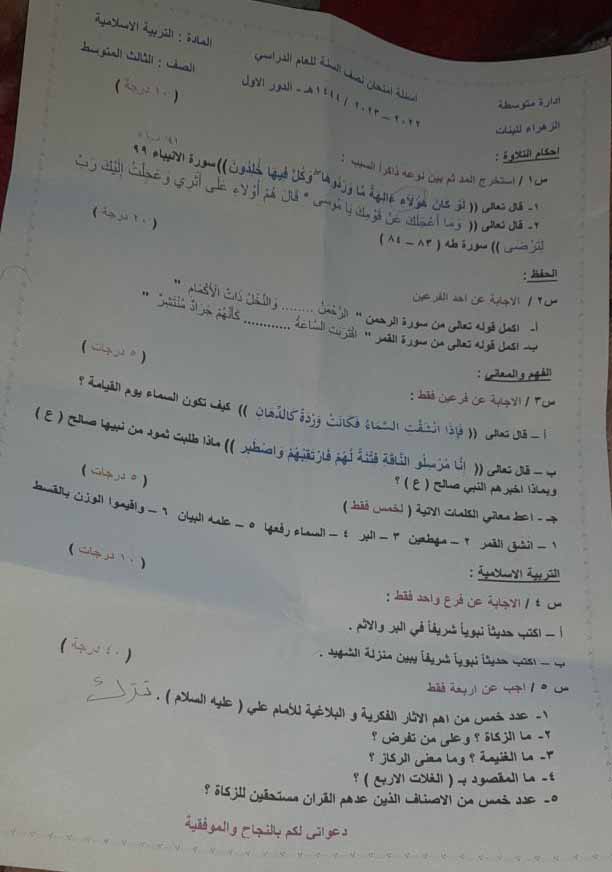 ادارة متوسطة
الزهراء للبنات
اسئلة امتحان نصف السنة للعام الدراسي
٢٠٢٢ – ٢٠٢٣ / ١٤٤٤هـ - الدور الاول
المادة : التربية الاسلامية
الصف : الثالث المتوسط
أحكام التلاوة :
( ١٠ درجة )
س١ / استخرج المد ثم بين نوعه ذاكراً السبب :
١- قال تعالى (( لَوْ كَانَ هَؤُلَاءِ ءَالِهَةً مَّا وَرَدُوهَا وَكُلٌّ فِيهَا خَٰلِدُونَ )) سورة الانبياء ٩٩
٢- قال تعالى (( وَمَا أَعْجَلَكَ عَنْ قَوْمِكَ يَا مُوسَى * قَالَ هُمْ أُوْلَاءِ عَلَى أَثَرِي وَعَجِلْتُ إِلَيْكَ رَبِّ
لِتَرْضَى )) سورة طه ( ٨٣ – ٨٤ )
الحفظ :
( ٢٠ درجة )
س٢ / الاجابة عن احد الفرعين
أ- اكمل قوله تعالى من سورة الرحمن " الرَّحْمَنُ ........ وَالنَّخْلُ ذَاتُ الْأَكْمَامِ "
ب- اكمل قوله تعالى من سورة القمر " اقْتَرَبَتِ السَّاعَةُ ........... كَأَنَّهُمْ جَرَادٌ مُنْتَشِرٌ "
الفهم والمعاني :
( ٥ درجات )
س٣ / الاجابة عن فرعين فقط :
أ – قال تعالى (( فَإِذَا انْشَقَّتِ السَّمَاءُ فَكَانَتْ وَرْدَةً كَالدِّهَانِ )) كيف تكون السماء يوم القيامة ؟
ب – قال تعالى (( إِنَّا مُرْسِلُو النَّاقَةِ فِتْنَةً لَهُمْ فَارْتَقِبْهُمْ وَاصْطَبِرْ )) ماذا طلبت ثمود من نبيها صالح ( ع )
وبماذا اخبرهم النبي صالح ( ع ) ؟
( ٥ درجات )
جـ - اعط معاني الكلمات الاتية ( لخمس فقط )
١ – انشق القمر ٢ – مهطعين ٣ – البر ٤ – السماء رفعها ٥ – علمه البيان ٦ – واقيموا الوزن بالقسط
التربية الاسلامية :
( ١٠ درجات )
س ٤ / الاجابة عن فرع واحد فقط :
أ – اكتب حديثاً نبوياً شريفاً في البر والاثم .
ب – اكتب حديثاً نبوياً شريفاً يبين منزلة الشهيد .
( ٤٠ درجة )
س ٥ / اجب عن اربعة فقط
١- عدد خمس من اهم الاثار الفكرية و البلاغية للأمام علي ( عليه السلام ) .
٢- ما الزكاة ؟ وعلى من تفرض ؟
٣- ما الغنيمة ؟ وما معنى الركاز ؟
٤- ما المقصود بـ ( الغلات الاربع ) ؟
٥- عدد خمس من الاصناف الذين عدهم القران مستحقين للزكاة ؟
دعواتي لكم بالنجاح والموفقية